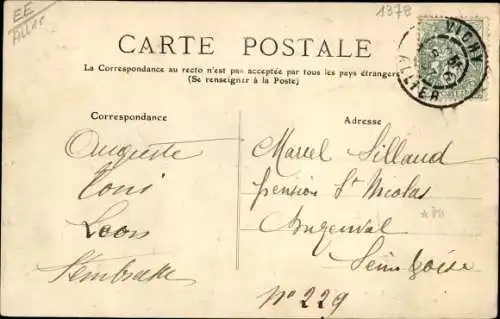 EE
Allier
1378
VICHY
ALLIER
CARTE POSTALE
La Correspondance au recto n'est pas acceptée par tous les pays étrangers
(Se renseigner à la Poste)
Correspondance
Adresse
Auguste
Toni
Leon
Marcel Sillaud
pension St Nicolas
Seine & Oise
n° 229